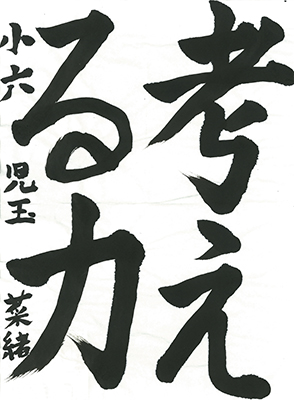 考え
る力
小六 児玉 菜緒